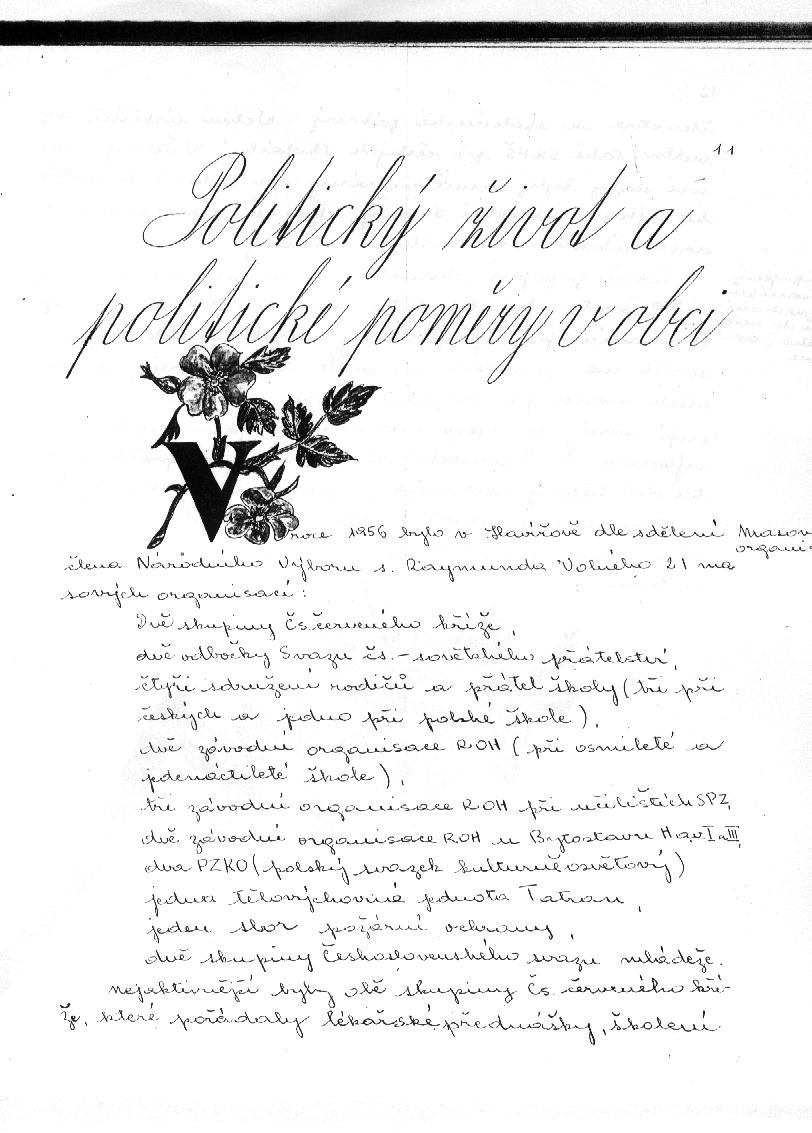 11
Politický život a
politické poměry v obci
V roce 1956 bylo v Havířově dle sdělení
Masov
organi
člena Národního Výboru s. Raymunda Volného 21 ma
sových organisací:
Dvě skupiny Čs. červeného kříže,
dvě odbočky Svazu čs. – sovětského přátelství,
čtyři sdružení rodičů a přátel školy (tři při
českých a jedno při polské škole),
dvě závodní organisace ROH (při osmileté a
jedenáctileté škole),
tři závodní organisace ROH při učilištích SPZ,
dvě závodní organisace ROH u Bytostavu Hav. I a III,
dva PZKO (polský svazek kulturně osvětový)
jedna tělovýchovná jednota Tatran,
jeden sbor požární ochrany,
dvě skupiny Československého svazu mládeže.
nejaktivnější byly obě skupiny Čs. červeného kří-
že, které pořádaly lékařské přednášky, školení